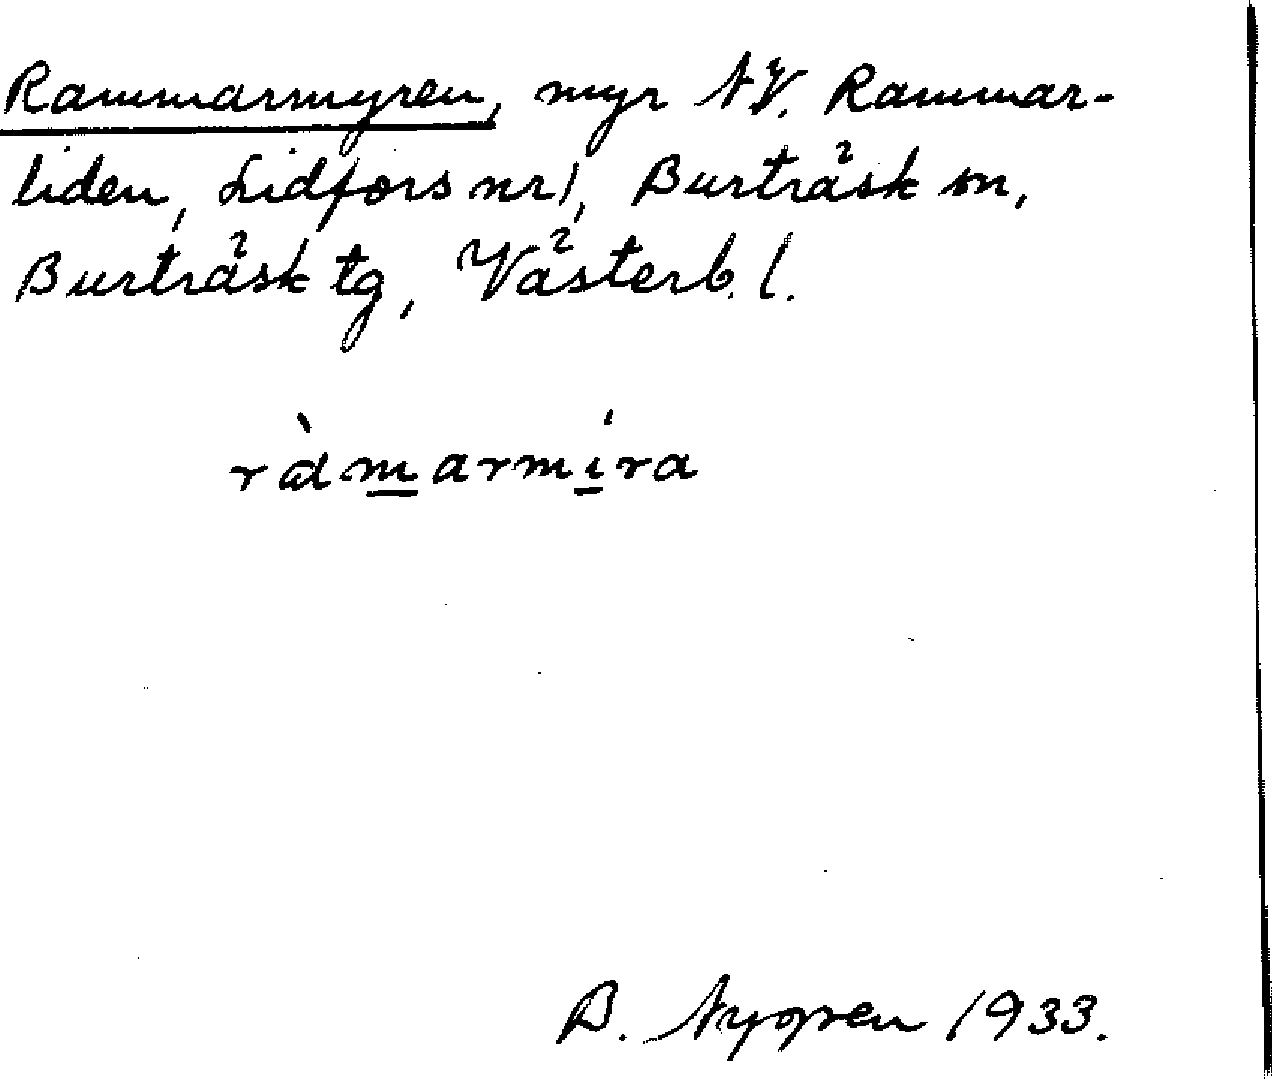 Rammarmyren, myr NV. Rammar-
liden, Lidfors nr 1, Burträsk sn,
Burträsk tg, Västerb. l.
ràmarmíra
B. Nygren 1933.